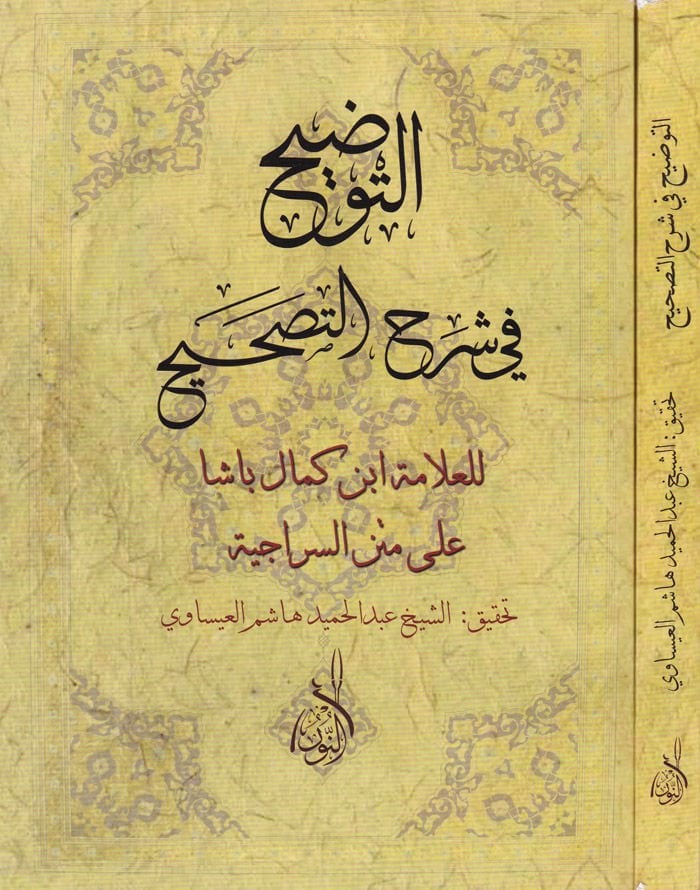 التوضيح
في شرح التصحيح
للعلامة ابن كمال باشا
على متن السراجية
تحقيق: الشيخ عبد الحميد هاشم العيساوي
النور
التوضيح في شرح التصحيح
تحقيق: الشيخ عبد الحميد هاشم العيساوي
النور